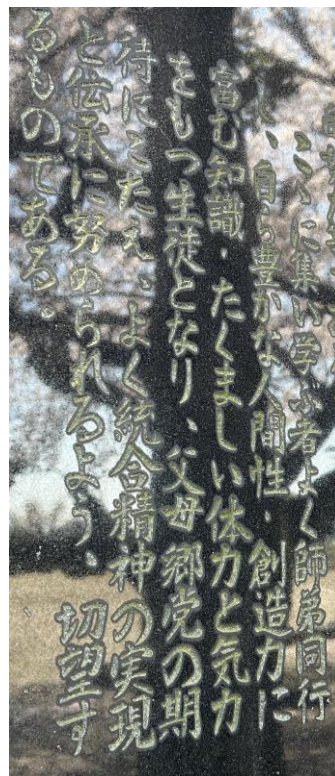 ここに集い学ぶ者よく師弟同行
し、自ら豊かな人間性・創造力に
富む知識・たくましい体力と気力
をもつ生徒となり、父母郷党の期
待にこたえ、よく統合精神の実現
と伝承に努められるよう、切望す
るものである。